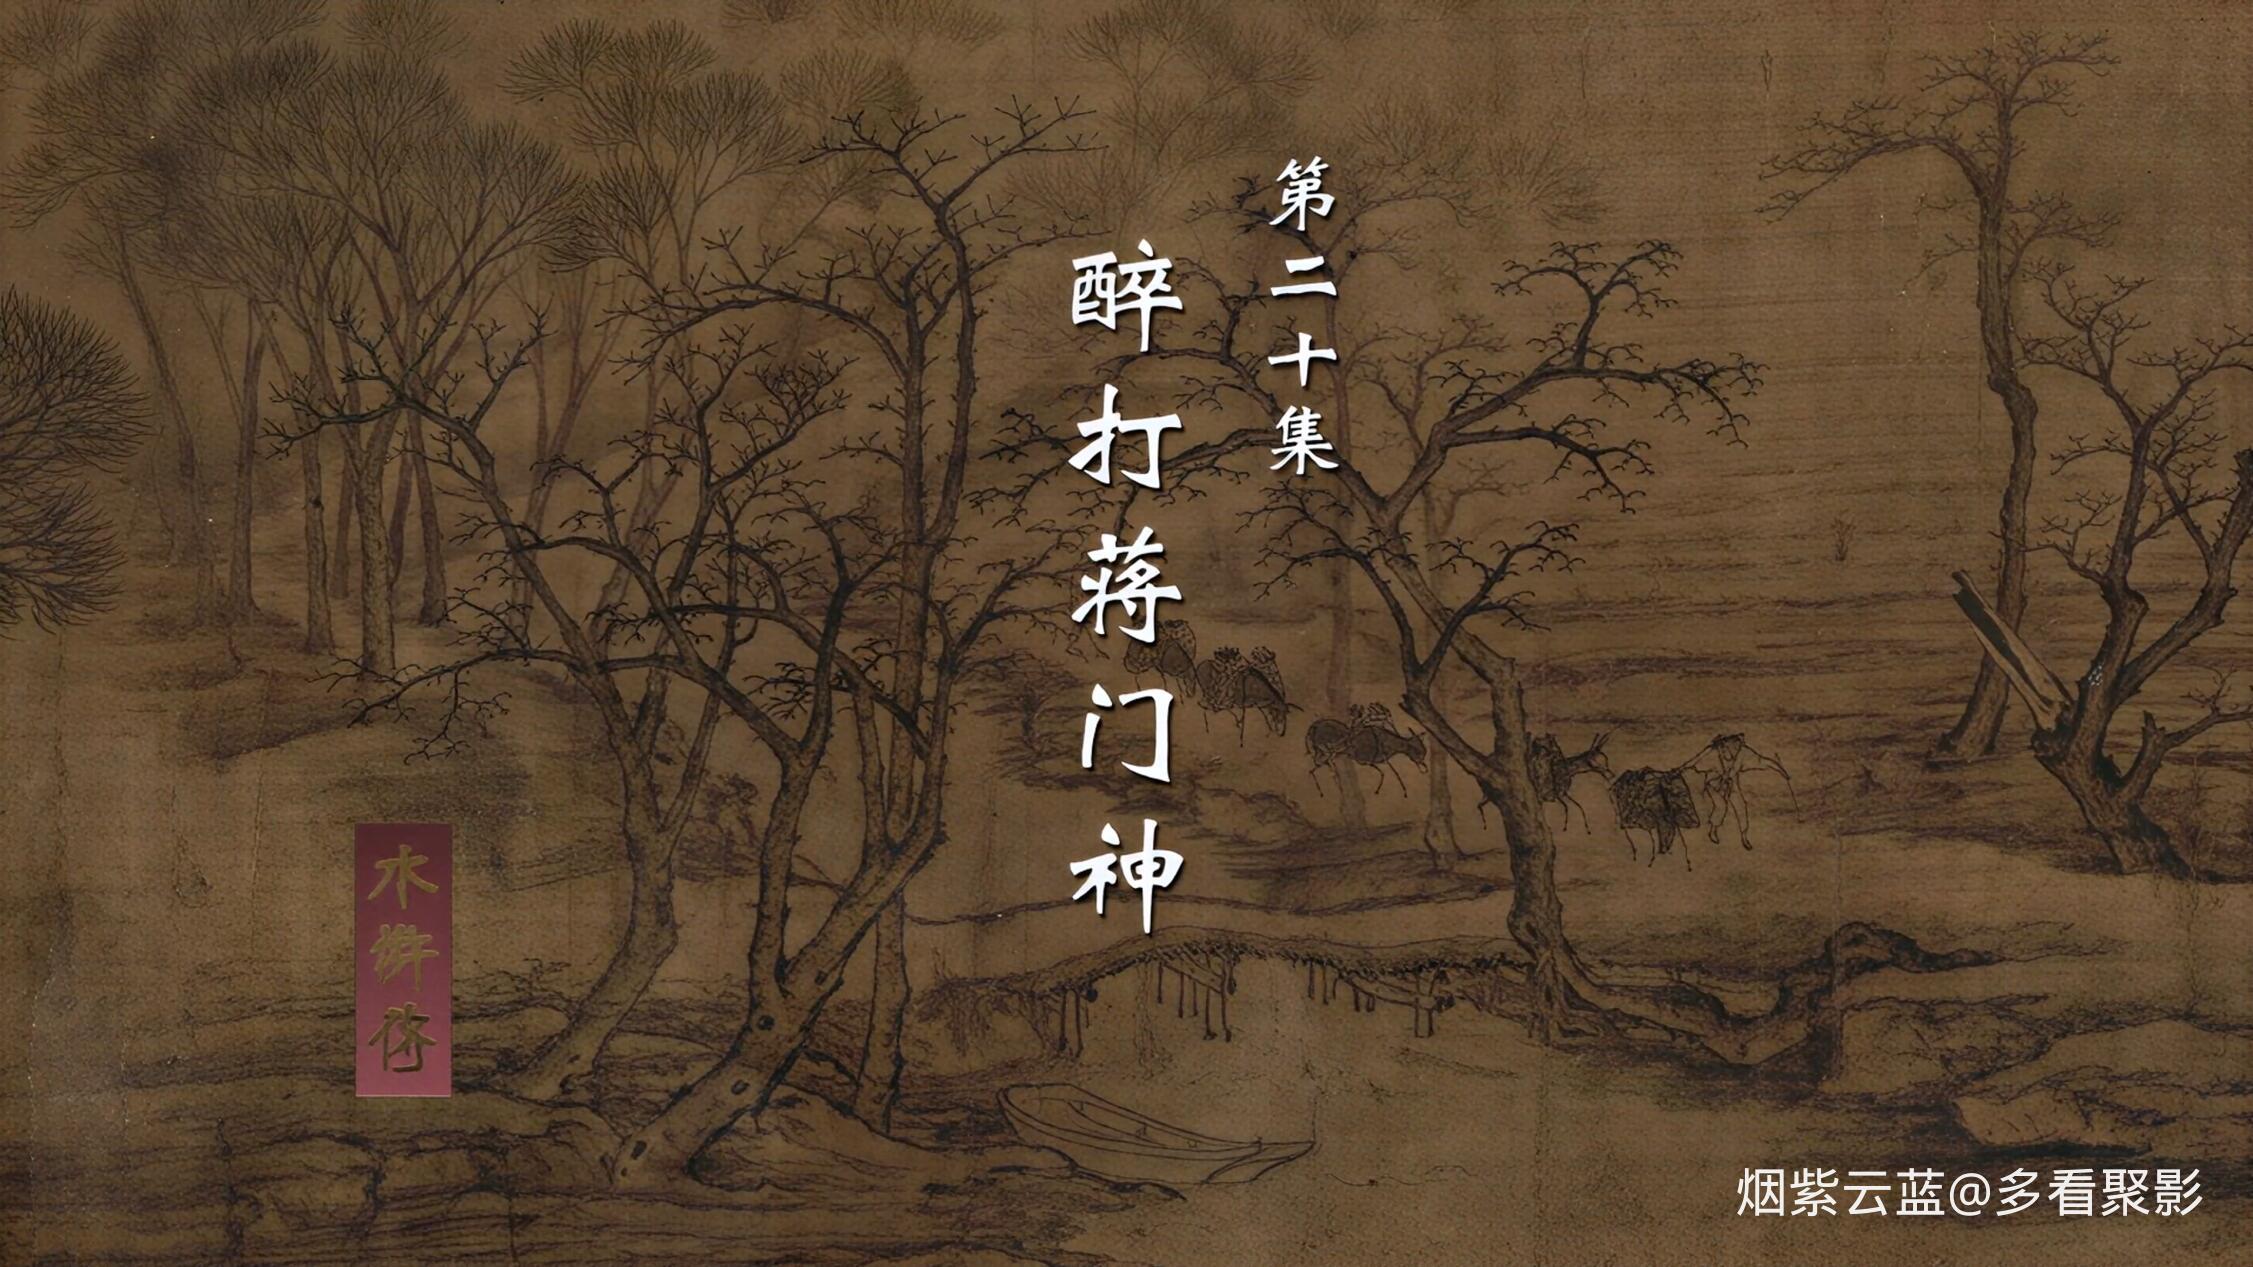 第二十集
醉打蒋门神
水浒传
烟紫云蓝@多看聚影